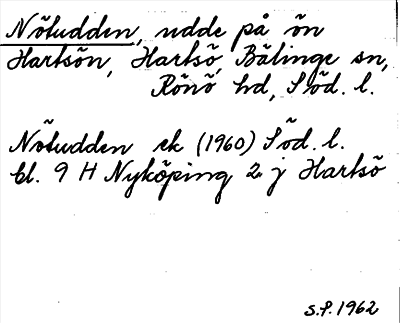 Nötudden, udde på ön
Hartsön, Hartsö, Bälinge sn,
Rönö hd, Söd. l.
Nötudden ek (1960) Söd. l.
bl. 9 H Nyköping 2 j Hartsö
S.P. 1962